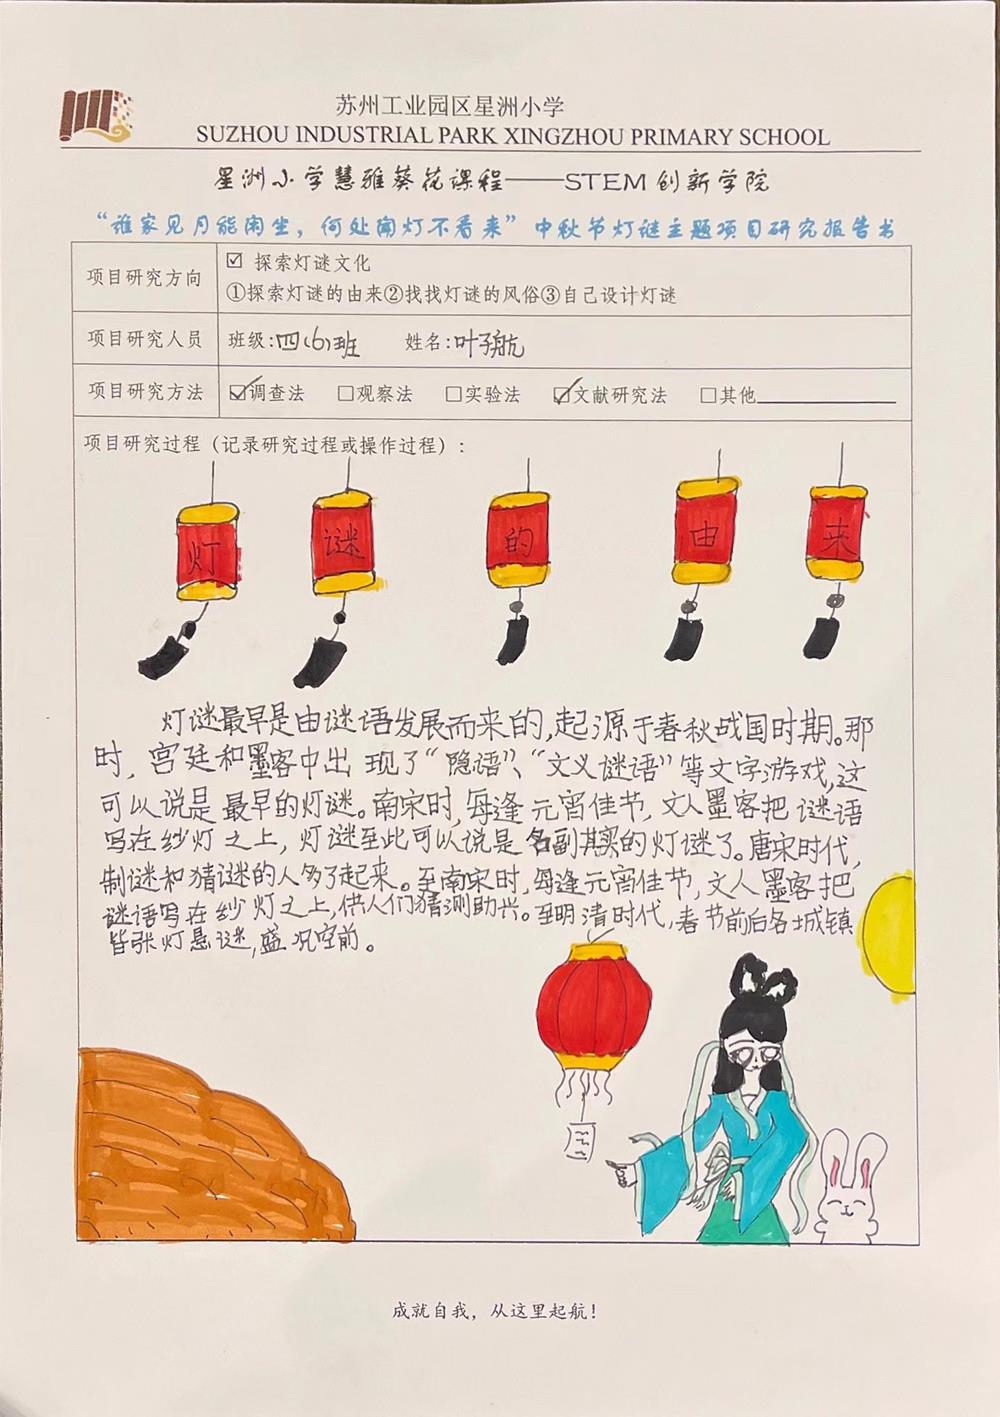 苏州工业园区星洲小学
SUZHOU INDUSTRIAL PARK XINGZHOU PRIMARY SCHOOL
星洲小学慧雅葵花课程——STEM 创新学院
“谁家见月能闲坐，何处闻灯不看来”中秋节灯谜主题项目研究报告书
项目研究方向
☑ 探索灯谜文化
①探索灯谜的由来②找找灯谜的风俗③自己设计灯谜
项目研究人员
班级:四(6)班 姓名:叶子航
项目研究方法
☑调查法 □观察法 □实验法 ☑文献研究法 □其他
项目研究过程（记录研究过程或操作过程）：
灯 谜 的 由 来
灯谜最早是由谜语发展而来的,起源于春秋战国时期。那
时，宫廷和墨客中出现了“隐语”、“文义谜语”等文字游戏,这
可以说是最早的灯谜。南宋时,每逢元宵佳节,文人墨客把谜语
写在纱灯之上,灯谜至此可以说是名副其实的灯谜了。唐宋时代,
制谜和猜谜的人多了起来。至南宋时,每逢元宵佳节,文人墨客把
谜语写在纱灯之上,供人们猜测助兴。至明清时代,春节前后各城镇
皆张灯悬谜,盛况空前。
成就自我，从这里起航！